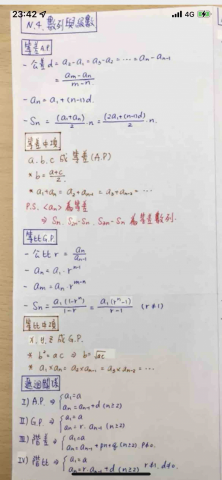 23:42
4G
N.4. 數列與級數
等差A.P
- 公差 d = a₂-a₁ = a₃-a₂ = ⋯ = an - an-1
= am-an / m-n
- an = a₁ + (n-1)d.
- Sn = (a₁+an)/2 · n = [2a₁+(n-1)d]/2 · n.
等差中項
a. b. c 成 等差 (A.P)
* b = a+c/2.
* a₁+an = a₂+an-1 = a₃+an-2 = ⋯
P.S. <an> 為等差
⇒ Sn. S2n-Sn. S3n-S2n 為等差數列.
等比G.P
- 公比 r = an/an-1
- an = a₁·rⁿ⁻¹
- am = an·rᵐ⁻ⁿ
- Sn = a₁(1-rⁿ)/1-r = a₁(rⁿ-1)/r-1 (r≠1)
等比中項
x. y. z 成 G.P.
* b² = ac ⇒ b = √ac
* a₁×an = a₂×an-1 = a₃×an-2 = ⋯
I) A.P ⇒ { a₁=a
an = an-1+d (n≥2)
II) G.P ⇒ { a₁=a
an = r·an-1 (n≥2)
III) 階差 ⇒ { a₁=a
an = an-1 + pn+q (n≥2) p≠0.
IV) 階比 ⇒ { a₁=a
an = r·an-1+d (n≥2) r≠1, d≠0.